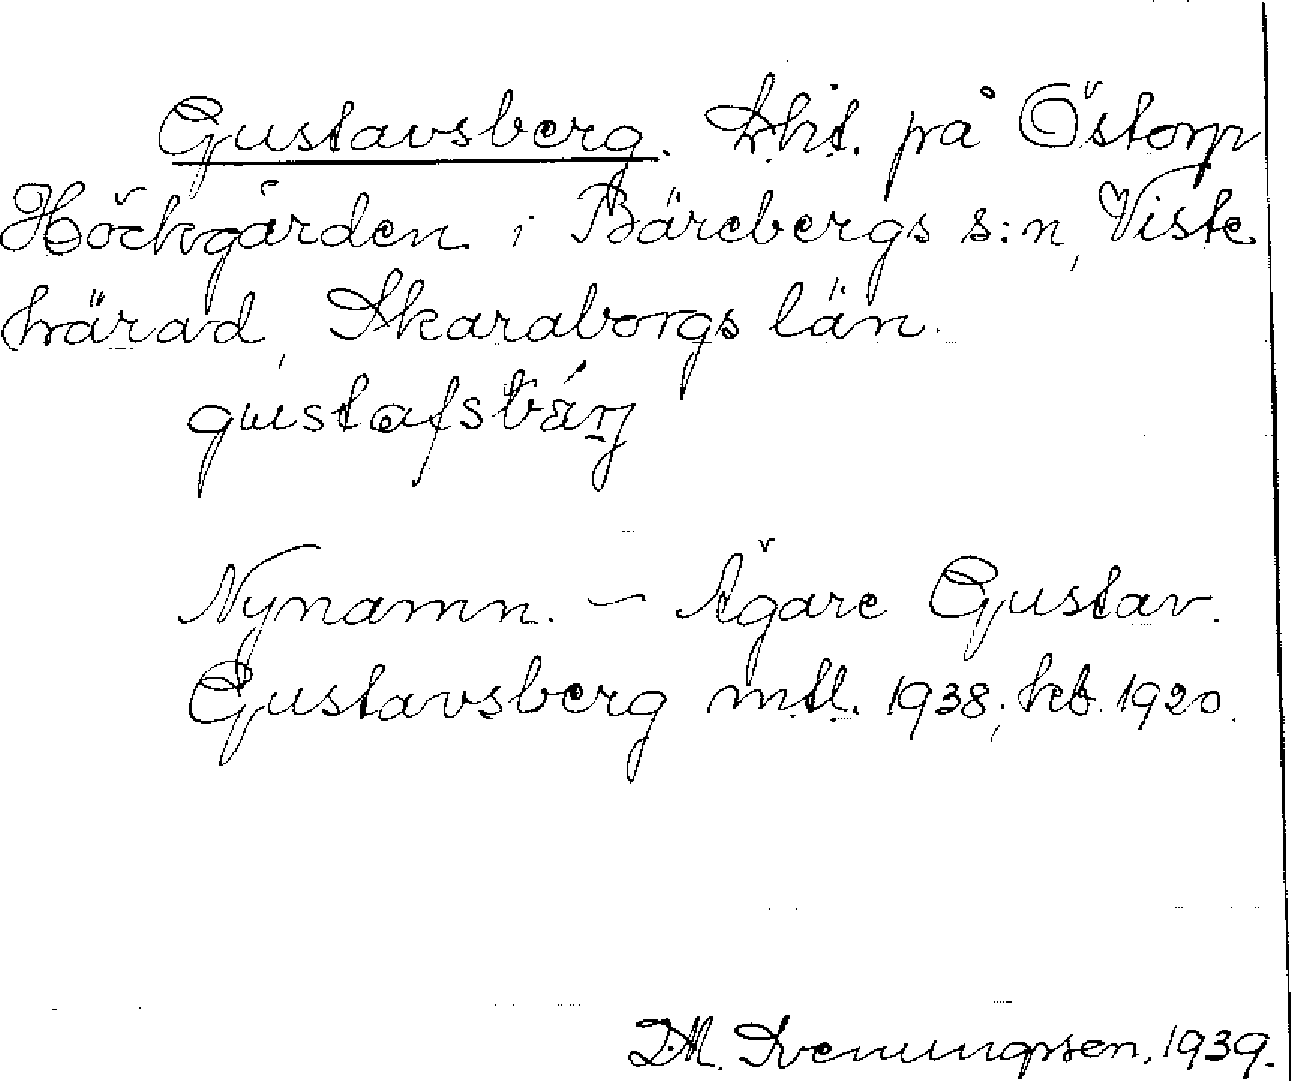 Gustavsberg. Lht. på Östorp
Höckgården i Bärebergs s:n, Viste
härad, Skaraborgs län.
gustafsbärj
Nynamn. – Ägare Gustav.
Gustavsberg mtl. 1938; hfb. 1920.
D.M. 1939.